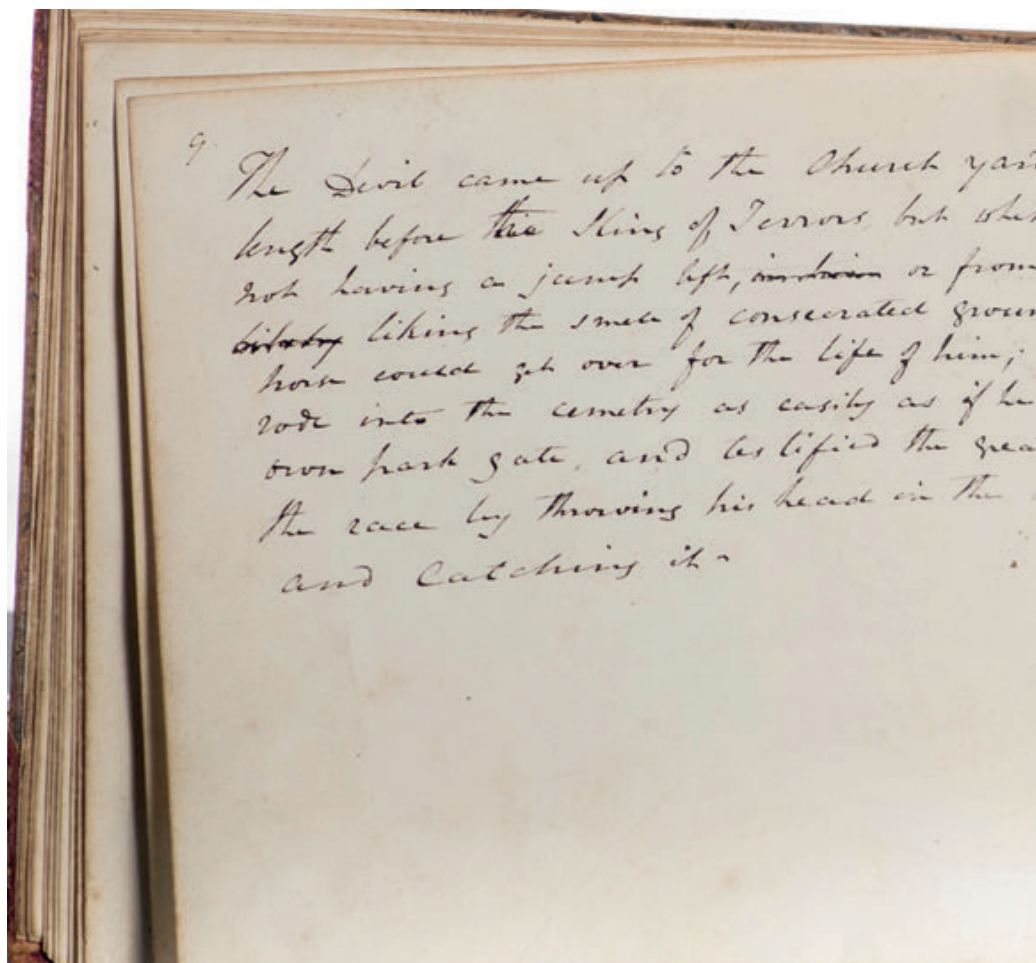 9.
The Devil came up to the Church yard
length before the King of Terrors, but whe
not having a jump left, or from
liking the smell of consecrated groun
horse could get over for the life of him;
rode into the cemetry as easily as if he
own park gate, and testified the grea
the race by throwing his head in the
and Catching it -